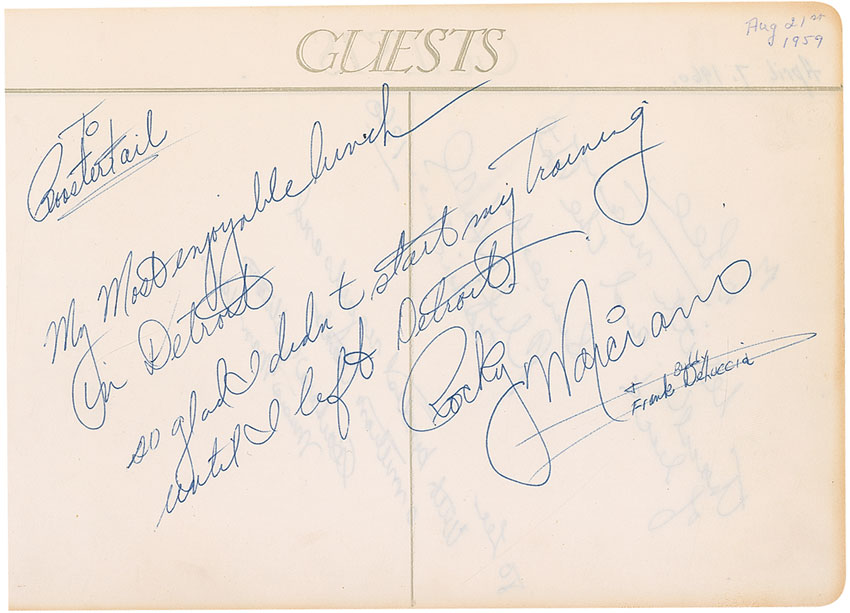 GUESTS
Aug 21st
1959
To
Roostertail
My Most enjoyable lunch
in Detroit
so glad I didn't start my Training
until I left Detroit.
Rocky Marciano
+
Frank DeLuccia